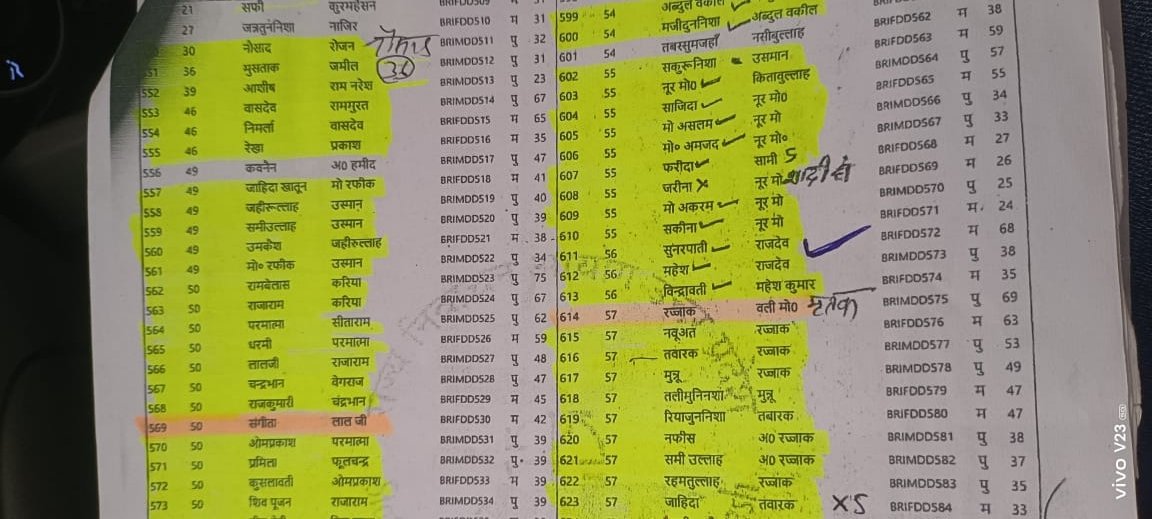 21 सफी कुरमहसन
27 जन्नतुननिशा नाजिर BRIFDD510 म 31
30 नौसाद रोजन BRIMDD511 पु 32
551 36 मुसताक जमील BRIMDD512 पु 31
552 39 आशीष राम नरेश BRIMDD513 पु 23
553 46 वासदेव राममुरत BRIMDD514 पु 67
554 46 निमर्ला वासदेव BRIFDD515 म 65
555 46 रेखा प्रकाश BRIFDD516 म 35
556 49 कवनैन अ0 हमीद BRIMDD517 पु 47
557 49 जाहिदा खातून मो रफीक BRIFDD518 म 41
558 49 जहीरूल्लाह उस्मान BRIMDD519 पु 40
559 49 समीउल्लाह उस्मान BRIMDD520 पु 39
560 49 उमकेश जहीरुल्लाह BRIFDD521 म 38
561 49 मो० रफीक उस्मान BRIMDD522 पु 34
562 50 रामबेलास करिया BRIMDD523 पु 75
563 50 राजाराम करिया BRIMDD524 पु 67
564 50 परमात्मा सीताराम BRIMDD525 पु 62
565 50 धरमी परमात्मा BRIFDD526 म 59
566 50 लालजी राजाराम BRIMDD527 पु 48
567 50 चन्द्रभान वेगराज BRIMDD528 पु 47
568 50 राजकुमारी चंद्रभान BRIFDD529 म 45
569 50 संगीता लाल जी BRIFDD530 म 42
570 50 ओमप्रकाश परमात्मा BRIMDD531 पु 39
571 50 प्रमिता फूलचन्द्र BRIMDD532 पु 39
572 50 कुसलावती ओमप्रकाश BRIFDD533 म 39
573 50 शिव पूजन राजाराम BRIMDD534 पु 39
36
599 54 मजीदुननिशा अब्दुल वकील BRIFDD562 म 38
600 54 तबस्सुमजहाँ नसीबुल्लाह BRIFDD563 म 59
601 54 सकुरूनिशा उसमान BRIMDD564 पु 57
602 55 नूर मो0 किताबुल्लाह BRIFDD565 म 55
603 55 साजिदा नूर मो0 BRIMDD566 पु 34
604 55 मो असलम नूर मो BRIMDD567 पु 33
605 55 मो० अमजद नूर मो० BRIFDD568 म 27
606 55 फरीदा सामी BRIFDD569 म 26
607 55 जरीना X नूर मो शादी से BRIMDD570 पु 25
608 55 मो अकरम नूर मो BRIFDD571 म 24
609 55 सकीना नूर मो BRIFDD572 म 68
610 55 सुनरपाती राजदेव BRIMDD573 पु 38
611 56 महेश राजदेव BRIFDD574 म 35
612 56 विन्द्रावती महेश कुमार BRIMDD575 पु 69
613 56 रज्जाक वली मो0 मृतक BRIFDD576 म 63
614 57 नवूअत रज्जाक BRIMDD577 पु 53
615 57 तवारक रज्जाक BRIMDD578 पु 49
616 57 मुन्नू रज्जाक BRIFDD579 म 47
617 57 तलीमुनिनशा मुन्नू BRIFDD580 म 47
618 57 रियाजुननिशा तबारक BRIMDD581 पु 38
619 57 नफीस अ0 रज्जाक BRIMDD582 पु 37
620 57 समी उल्लाह अ0 रज्जाक BRIMDD583 पु 35
621 57 रहमतुल्लाह रज्जाक BRIFDD584 म 33
622 57 जाहिदा तवारक XS
623 57
vivo V23